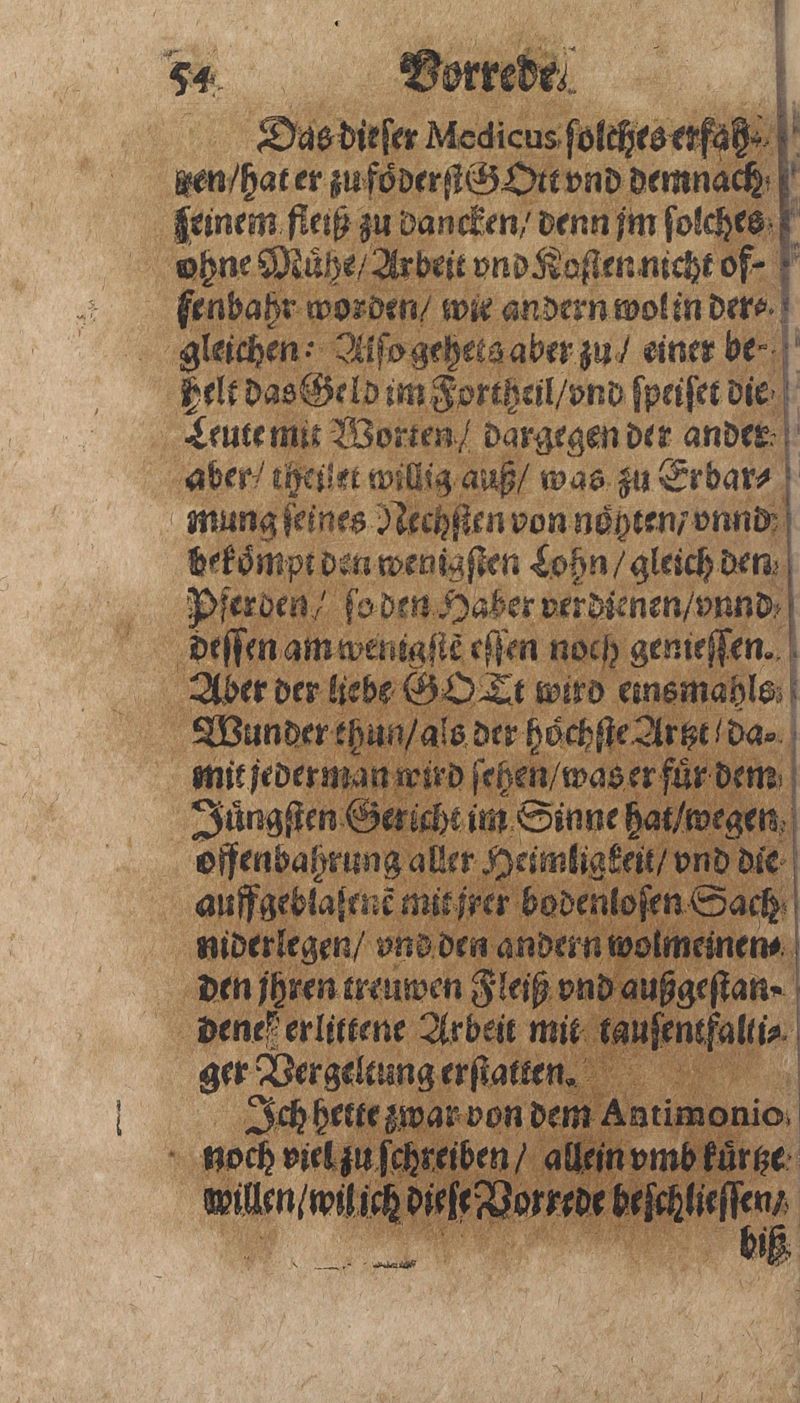 54. Vorrede.
Das dieſer Medicus ſolches erfah⸗
ren/ hat er zu foͤderſt GOtt vnd demnach
ſeinem fleiß zu dancken/ denn jm ſolches
ohne Muͤhe/ Arbeit vnd Koſten nicht of-
fenbahr worden/ wie andern wol in der⸗
gleichen: Alſo gehets aber zu/ einer be-
helt das Geld im Fortheil/ vnd ſpeiſet die
Leute mit Worten/ dargegen der ander
aber/ theilet willig auß/ was zu Erbar⸗
mung ſeines Nechſten von noͤhten/ vnnd
bekoͤmpt den wenigſten Lohn/ gleich den
Pferden/ ſo den Haber verdienen/ vnnd
deſſen am wenigſtẽ eſſen noch genieſſen.
Aber der liebe GOTt wird einsmahls
Wunder thun/ als der hoͤchſte Artzt/ da⸗
mit jederman wird ſehen/ was er fuͤr dem
Juͤngſten Gericht im Sinne hat/ wegen
offenbahrung aller Heimligkeit/ vnd die
auffgeblaſenẽ mit jrer bodenloſen Sach
niderlegen/ vnd den andern wolmeinen⸗
den jhren treuwen Fleiß vnd außgeſtan-
dene/ erlittene Arbeit mit tauſentfalti⸗
ger Vergeltung erſtatten.
Ich hette zwar von dem Antimonio
noch viel zu ſchreiben/ allein vmb kuͤrtze
willen/ wil ich dieſe Vorrede beſchlieſſen/
biß